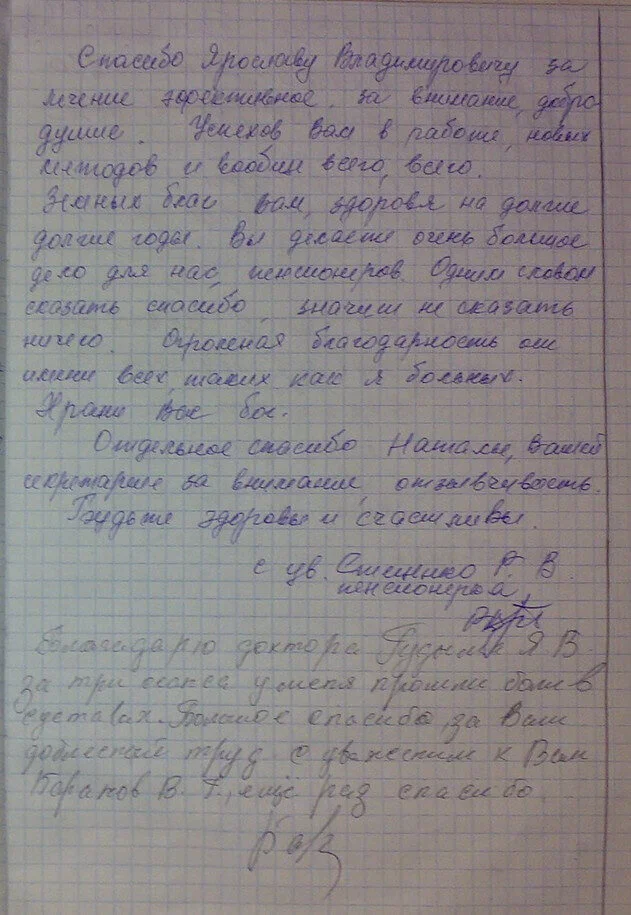 Спасибо Ярославу Владимировичу за
лечение эфективное, за внимание, добро
душие. Успехов вам в работе, новых
методов и вообщи всего, всего.
Земных благ вам, здоровя на долгие
долгие годы. Вы делаете очень большое
дело для нас, пенсионеров. Одним словом
сказать спасибо, значит не сказать
ничего. Огромная благодарность от
имени всех, таких как я больных.
Храни вас бог.
Отдельное спасибо Наталье, вашей
секретарше за внимание, отзывчивость.
Будьте здоровы и счастливы.
с ув. Стеценко Г. В.
пенсионерка,
Благадарю доктора Я В
за три сеанса у меня прошли боли в
суставах. Большое спасибо за Ваш
доблестный труд с уважением к Вам
Баранов В. Г., ещё раз спасибо.